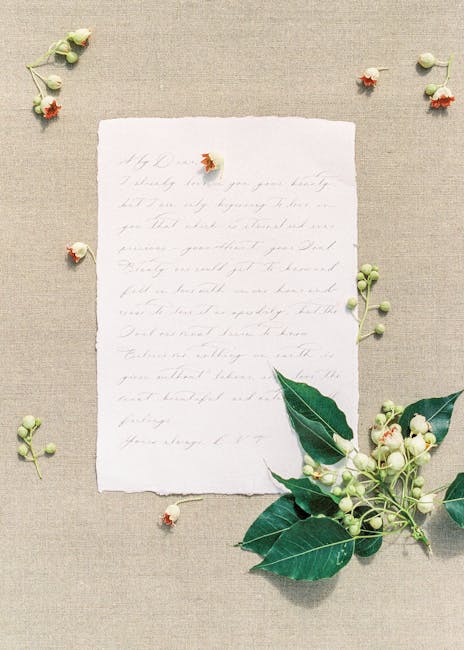 My Dear
I already love in you your beauty,
but I am only beginning to love in
you that which is eternal and ever
precious – your Heart, your Soul.
Beauty one could get to know and
fall in love with in one hour and
cease to love it as speedily, but the
Soul one must learn to know.
Believe me, nothing on earth is
given without labour, love, the
most beautiful and
feelings
Yours always, L